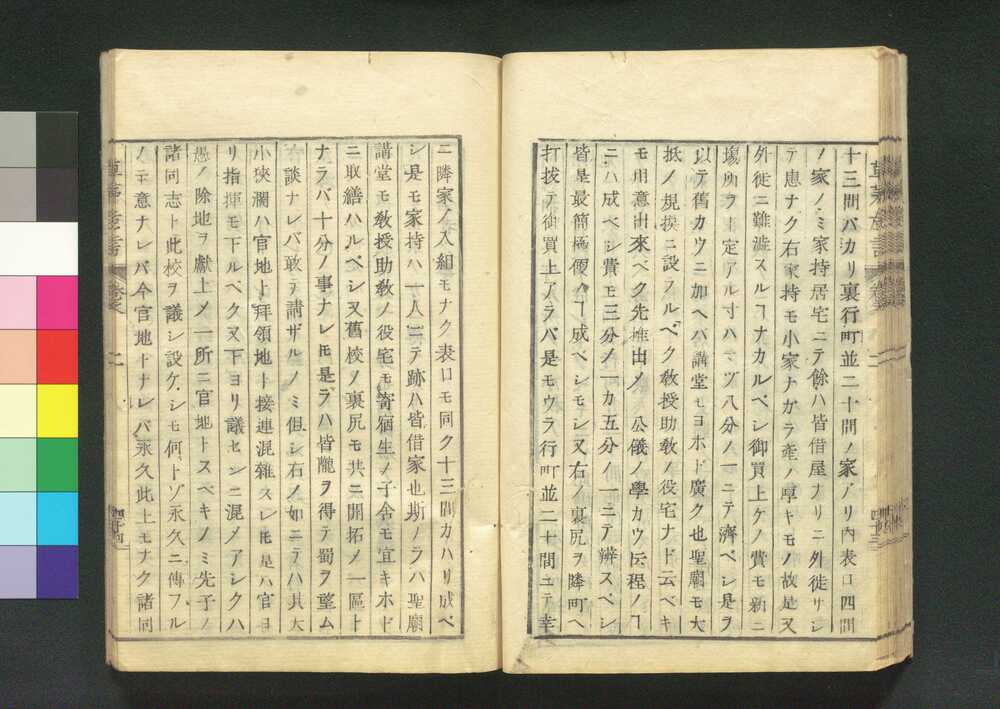 十三間バカリ裏行町並二十間ノ家アリ内表口四間
ノ家ノミ家持居宅ニテ餘ハ皆借屋ナリニ外徙サシ
テ患ナク右家持モ小家ナガラ產ノ厚キモノ故是又
外徙ニ難澁スルヿナカルベシ御買上ケノ費モ新ニ
塲所ヲト定アル寸ハマヅ八分ノ一ニテ濟ベシ是ヲ
以テ舊カウニ加ヘバ講堂モヨホド廣ク也聖廟モ大
抵ノ規摸ニ設ラルベク敎授助敎ノ役宅ナド云ベキ
モ用意出來ベク先推出メ公儀ノ學カウ伝程ノヿ
ニハ成ベシ費モ三分ノ一カ五分ノ一ニテ辨スベシ
皆是最簡極便ノヿ成ベシモシ又右ノ裏尻ヲ隣町ヘ
打拔テ御買上アラバ是モウラ行町並二十間ユテ幸
ニ隣家ノ入組モナク表口モ同ク十三間カハリ成ベ
シ是モ家持ハ一人ニテ跡ハ皆借家也斯ノラハ聖廟
講堂モ敎授助敎ノ役宅モ寄宿生ノ子舍モ宜キホド
ニ取繕ハルベシ又舊校ノ裏尻モ共ニ開拓メ一區ト
ナラバ十分ノ事ナレ𪜈是ラハ皆隴ヲ得テ蜀ヲ望ム
ノ談ナレバ敢テ請ザルノミ但シ石ノ如ニテハ其大
小狹濶ハ官地ト拜領地ト接連混雜スレ𪜈是ハ官ヨ
リ指揮モ下ルベク又下ヨリ議センニ混メアシクハ
愚ノ除地ヲ獻上メ一所ニ官地トスベキノミ先子ノ
諸同志ト此校ヲ議シ設ケシモ何トゾ永久ニ傳フル
ノ意ナレバ今官地トナレバ永久此上モナク諸同